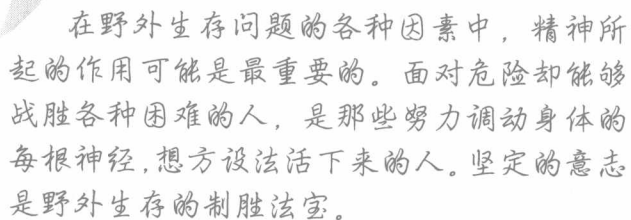 在野外生存问题的各种因素中，精神所
起的作用可能是最重要的。面对危险却能够
战胜各种困难的人，是那些努力调动身体的
每根神经,想方设法活下来的人。坚定的意志
是野外生存的制胜法宝。